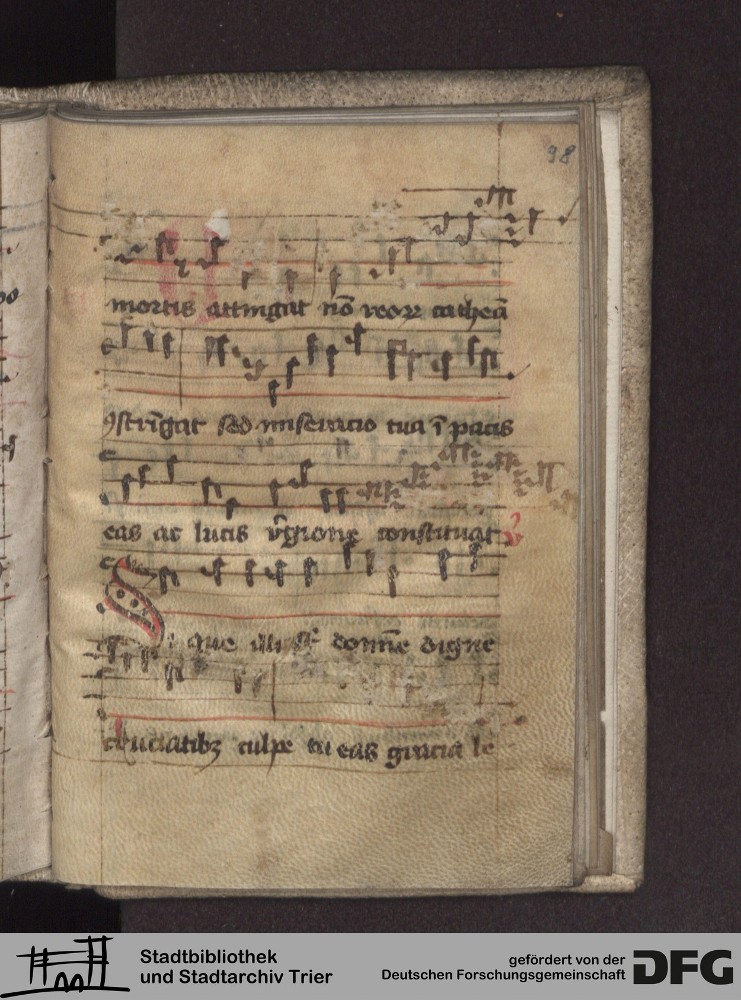 98
mortis attingat nō reoꝝ catheaᷓ
ꝯstrīgat sed miseracio tua ī pacis
eas ac lucis r̄gione constituat
Sique illis st̄ domīe digne
cruciatibꝫ culpe tu eas gracia le
Stadtbibliothek
und Stadtarchiv Trier
gefördert von der
Deutschen Forschungsgemeinschaft
DFG